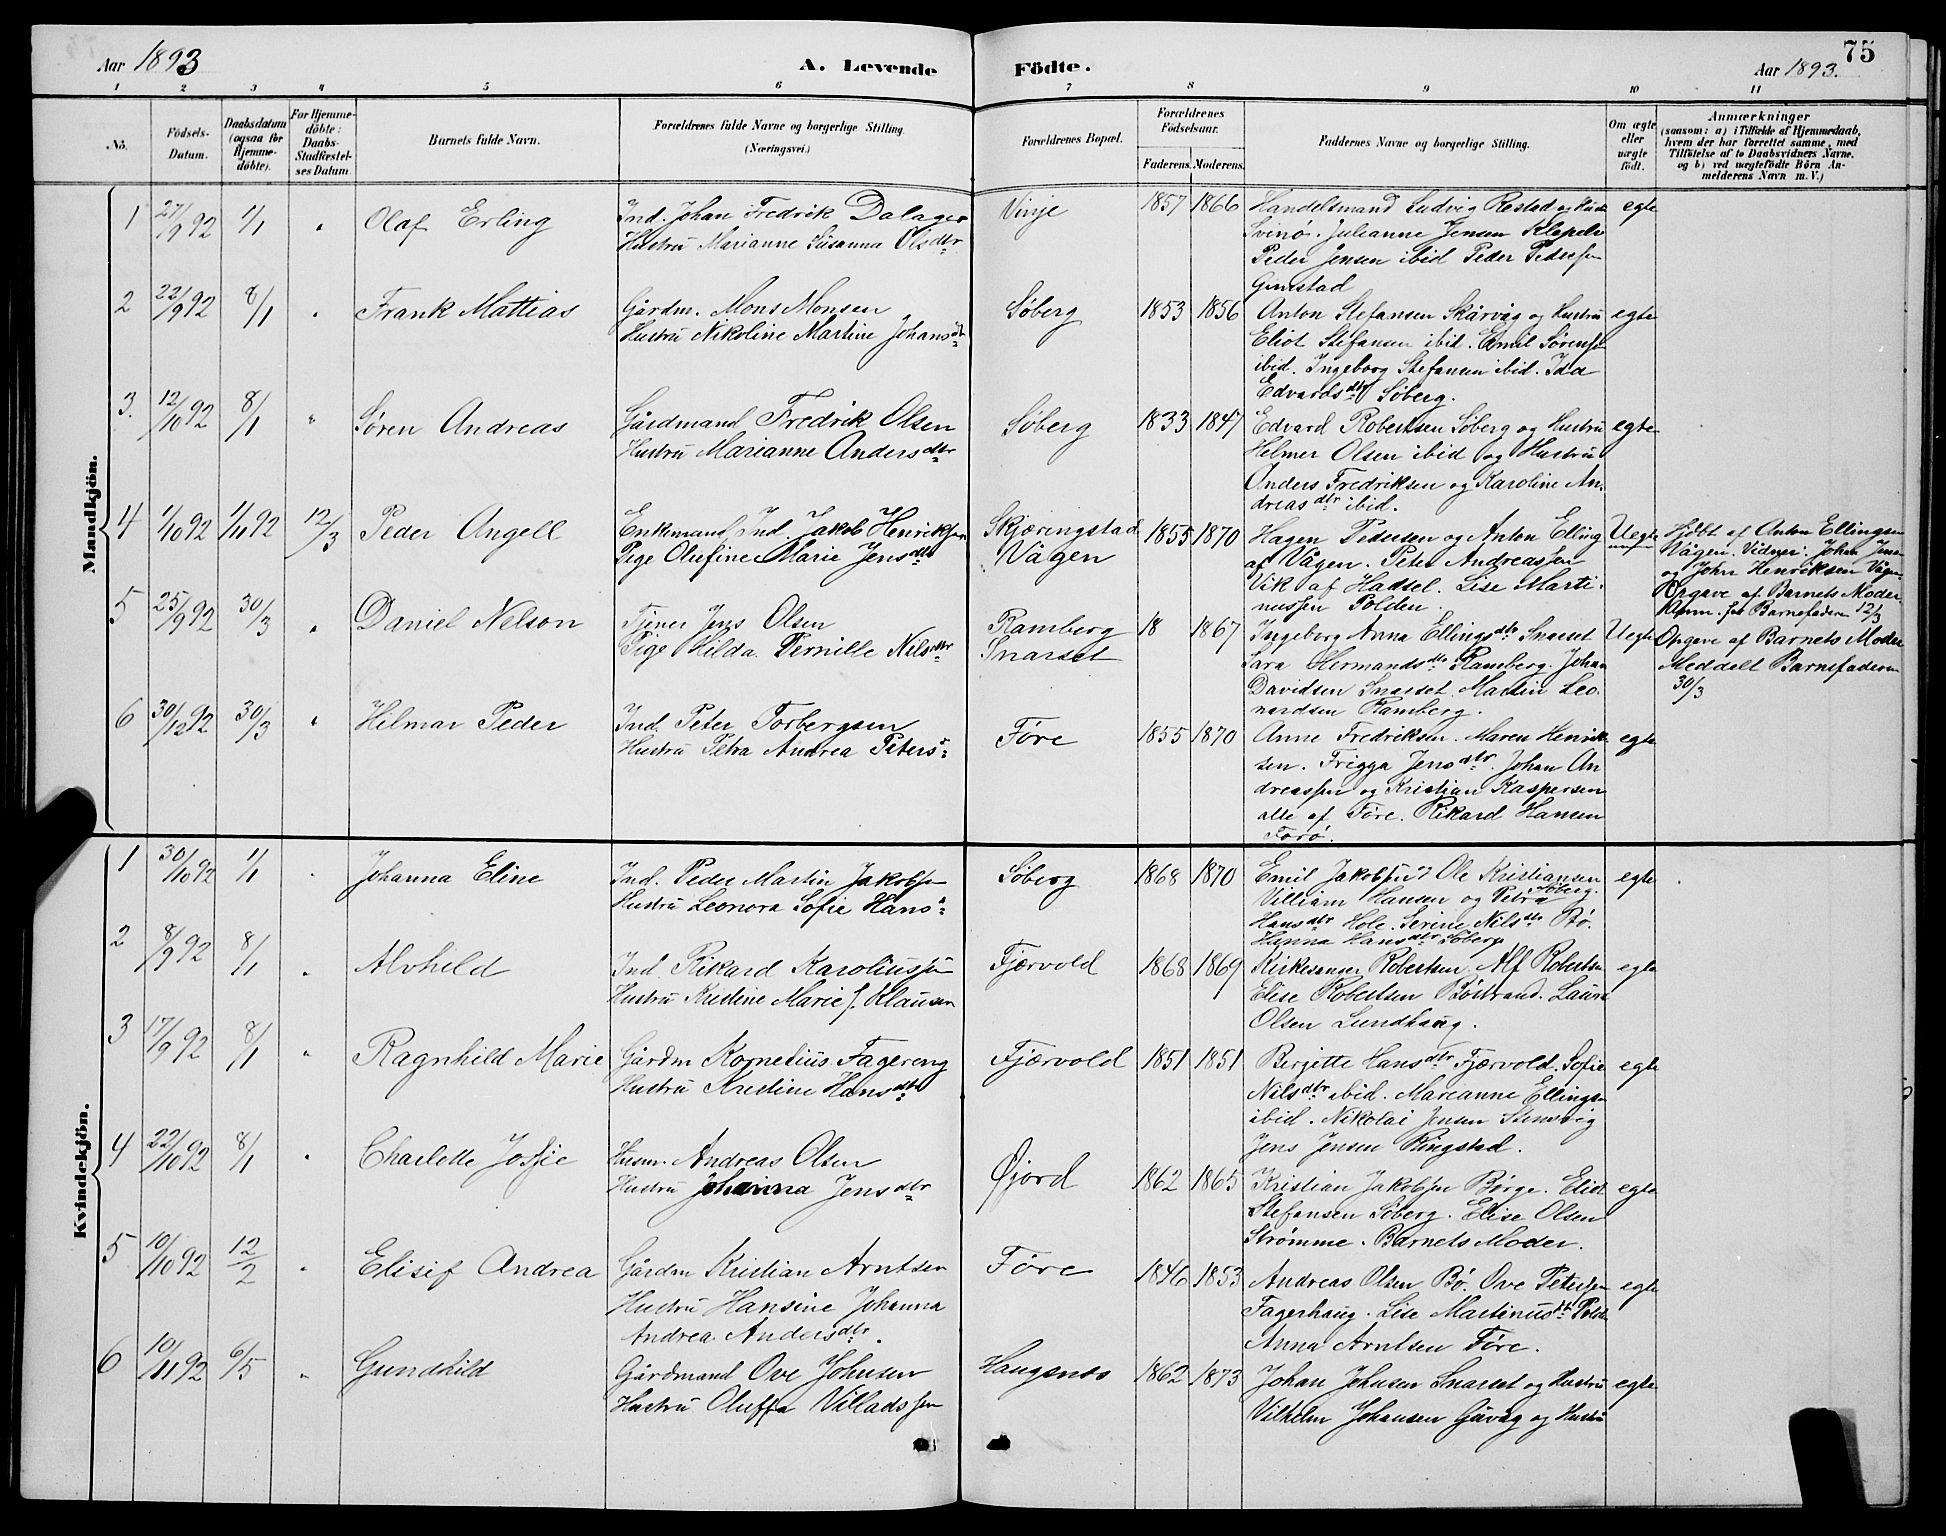 75
Aar 1893
A. Levende Födte.
Aar 1893.
1 2 3 4 5 6 7 8 9 10 11
No.
Födsels-Datum.
Daabsdatum (ogsaa for Hjemmedöbte).
For Hjemmedöbte: Daabs-Stadfæstelses Datum.
Barnets fulde Navn.
Forældrenes fulde Navne og borgerlige Stilling. (Næringsvei.)
Forældrenes Bopæl.
Forældrenes Födselsaar.
Faderens. Moderens.
Faddernes Navne og borgerlige Stilling.
Om ægte eller uægte födt.
Anmærkninger
(saasom: a) i Tilfælde af Hjemmedaab,
hvem der har forrettet samme, med
Tilföielse af to Daabsvidners Navne.
og b) ved uægtefödte Börn An-
melderens Navn m. V.)
Mandkjön.
1 27/9 92 1/1 " Olaf Erling
Ind. Johan Fredrik Dalager
Hustru Marianne Susanna Olsdtr
Vinje 1857 1866
Handelsmand Ludvig Restad og Hustr
Svinø. Julianne Jensen Klepels
Peder Jensen ibid Peder Pedersen
Gimstad
egte
2 22/9 92 8/1 " Frank Mattias
Gårdm. Mons Monsen
Hustru Nikoline Martine Johansdt
Søberg 1853 1856
Anton Stefansen Skårvåg og Hustru
Eliot Stefansen ibid. Emil Sørensen
ibid. Ingeborg Stefansen ibid. Ida
Edvardsdtr Søberg.
egte
3. 12/10 92 8/1 " Søren Andreas
Gårdmand Fredrik Olsen
Hustru Marianne Andersdtr
Søberg 1833 1847
Edvard Robertsen Søberg og Hustru
Helmer Olsen ibid og Hustru
Anders Fredriksen og Karoline An-
dreasdtr ibid.
egte
4 1/10 92 1/11 92 12/3 Peder Angell
Enkemand Ind. Jakob Henriksen
Pige Olufine Marie Jensdtr
Skjæringstad
Vågen
1855 1870
Hagen Pedersen og Anton Elling
af Vågen. Peter Andreassen
Vik af Hadsel. Lise Marti-
nussen Polden.
Uegte
Hjdbt af Anton Ellingsen
Vågen. Vidner: Johan Jensen
og John Henriksen Vågen
Opgave af Barnets Moder.
Anm. for Barnefaderen 12/3
5 25/9 92 30/3 " Daniel Nelson
Tjener Jens Olsen
Pige Hilda Pernille Nilsdtr
Ramberg
Snarset
18 1867
Ingeborg Anna Ellingsdtr Snarset
Sara Hermandsdtr Ramberg. Johan
Davidsen Snarset. Martin Leo-
nardsen Ramberg.
Uegte
Opgave af Barnets Moder
Meddelt Barnefaderen
30/3
6 30/12 92 30/3 " Hilmar Peder
Ind. Peter Torbergsen
Hustru Petra Andrea Peters
Føre 1855 1870
Anne Fredriksen. Maren Henrik-
sen. Frigga Jensdtr. Johan An-
dreassen og Kristian Kaspersen
alle af Føre. Rikard Hansen
Forø.
egte
Kvindekjön.
1 30/10 92 1/1 " Johanna Eline
Ind. Peder Martin Jakobsen
Hustru Leonora Sofie Hans
Søberg 1868 1870
Emil Jakobsen og Ole Kristiansen
Søberg.
Villiam Hansen og Petra
Hansdtr Hole. Serine Nilsdtr Bø.
Hanna Hansdtr Søberg
egte
2 8/9 92 8/1 " Alvhild
Ind. Rikard Karoliussen
Hustru Kristine Marie f. Klausen
Fjærvold 1868 1869
Kirkesanger Robertsen. Alf Robertsen
Elise Robertsen Bøstrand. Laura
Olsen Lundhaug.
egte
3 17/9 92 8/1 " Ragnhild Marie
Gårdm Kornelius Fagereng
Hustru Kristine Hansdtr
Fjærvold 1851 1851
Berjette Hansdtr Fjærvold. Sofie
Nilsdtr ibid. Marianne Ellingsen
ibid. Nikolai Jensen Stensvig
Jens Jensen Ringstad.
egte
4 22/10 92 8/1 " Charlotte Josfie
Husm. Andreas Olsen
Hustru Johanna Jensdtr
Øjord 1862 1865
Kristian Jakobsen Børge. Eliot
Stefansen Søberg. Elise Olsen
Strømme. Barnets Moder.
egte
5 10/10 92 12/2 " Elisif Andrea
Gårdm Kristian Arntsen
Hustru Hansine Johanna
Andrea Andersdtr.
Føre 1846 1853
Andreas Olsen Bø. Ove Petersen
Fagerhaug. Lise Martinusdt Polden
Anna Arntsen Føre.
egte
6 10/11 92 6/5 " Gundhild
Gårdmand Ove Johnsen
Hustru Oluffa Villadssen
Haugsnes 1862 1873
Johan Johnsen Snarset og Hustru
Vilhelm Johansen Gåvåg og Hustru
egte